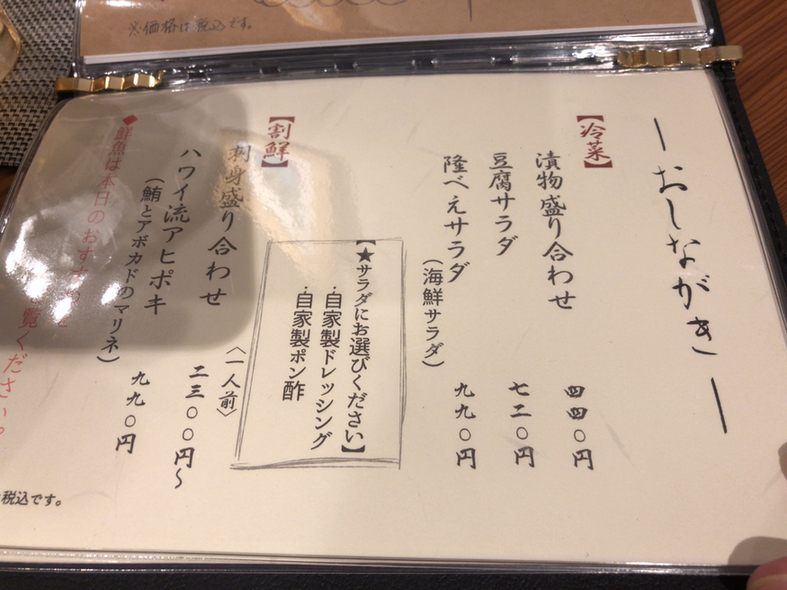 ※価格は税込です。
おしながき
【冷菜】
漬物盛り合わせ 四四〇円
豆腐サラダ 七二〇円
隆べえサラダ 九九〇円
(海鮮サラダ)
【★サラダにお選びください】
・自家製ドレッシング
・自家製ポン酢
【割鮮】
刺身盛り合わせ 〈一人前〉 二三〇〇円〜
ハワイ流アヒポキ 九九〇円
(鮪とアボカドのマリネ)
◆鮮魚は本日のおすすめを
ご覧ください。
税込です。